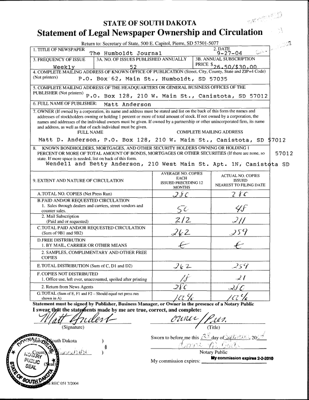 STATE OF SOUTH DAKOTA
Statement of Legal Newspaper Ownership and Circulation
Return to Secretary of State, 500 E. Capitol, Pierre, SD 57501-5077
1. TITLE OF NEWSPAPER
The Humboldt Journal
2. DATE
9-27-04
3. FREQUENCY OF ISSUE
Weekly
3A. NO. OF ISSUES PUBLISHED ANNUALLY
52
3B. ANNUAL SUBSCRIPTION
PRICE $26.50/$30.00
4. COMPLETE MAILING ADDRESS OF KNOWN OFFICE OF PUBLICATION (Street, City, County, State and ZIP+4 Code)
(Not printers)
P.O. Box 62, Main St., Humboldt, SD 57035
5. COMPLETE MAILING ADDRESS OF THE HEADQUARTERS OR GENERAL BUSINESS OFFICES OF THE
PUBLISHER (Not printers)
P.O. Box 128, 210 W. Main St., Canistota, SD 57012
6. FULL NAME OF PUBLISHER:
Matt Anderson
7. OWNER (If owned by a corporation, its name and address must be stated and
addresses of stockholders owning or holding 1 percent or more of total amount of stock. If not owned by a corporation, the
names and addresses of the individual owners must be given. If owned by a partnership or other unincorporated firm, its name
and address, as well as that of each individual must be given.
FULL NAME
COMPLETE MAILING ADDRESS
Matt D. Anderson, P.O. Box 128, 210 W. Main St., Canistota SD 57012
8. KNOWN BONDHOLDERS, MORTGAGEES, AND OTHER SECURITY HOLDERS OWNING OR HOLDING 1
PERCENT OR MORE OF TOTAL AMOUNT OF BONDS, MORTGAGES OR OTHER SECURITIES (If there are none, so
state. If more space is needed, list on back of this form.
57012
Wendell and Betty Anderson, 210 West Main St. Apt. 1H, Canistota SD
9. EXTENT AND NATURE OF CIRCULATION
AVERAGE NO. COPIES
EACH
ISSUED PRECEDING 12
MONTHS
ACTUAL NO. COPIES
ISSUED
NEAREST TO FILING DATE
A. TOTAL NO. COPIES (Net Press Run)
280
280
B. PAID AND/OR REQUESTED CIRCULATION
1. Sales through dealers and carriers, street vendors and
counter sales.
50
48
2. Mail Subscription
(Paid and or requested)
212
211
C. TOTAL PAID AND/OR REQUESTED CIRCULATION
(Sum of 9B1 and 9B2)
262
259
D. FREE DISTRIBUTION
1. BY MAIL, CARRIER OR OTHER MEANS
2. SAMPLES, COMPLIMENTARY AND OTHER FREE
COPIES
E. TOTAL DISTRIBUTION (Sum of C, D1 and D2)
262
259
F. COPIES NOT DISTRIBUTED
1. Office use, left over, unaccounted, spoiled after printing
21
2. Return from News Agents
G. TOTAL (Sum of E, F1 and F2 - Should equal net press run
shown in A)
100%
100%
Statement must be signed by Publisher, Business Manager, or Owner in the presence of a Notary Public
I swear that the statements made by me are true, correct, and complete:
Matt Anderson
(Signature)
Owner/Pres.
(Title)
Sworn to before me this
Notary Public
My commission expires:
My commission expires 2-2-2010
NOTARY
PUBLIC
SEAL
SOUTH DAKOTA